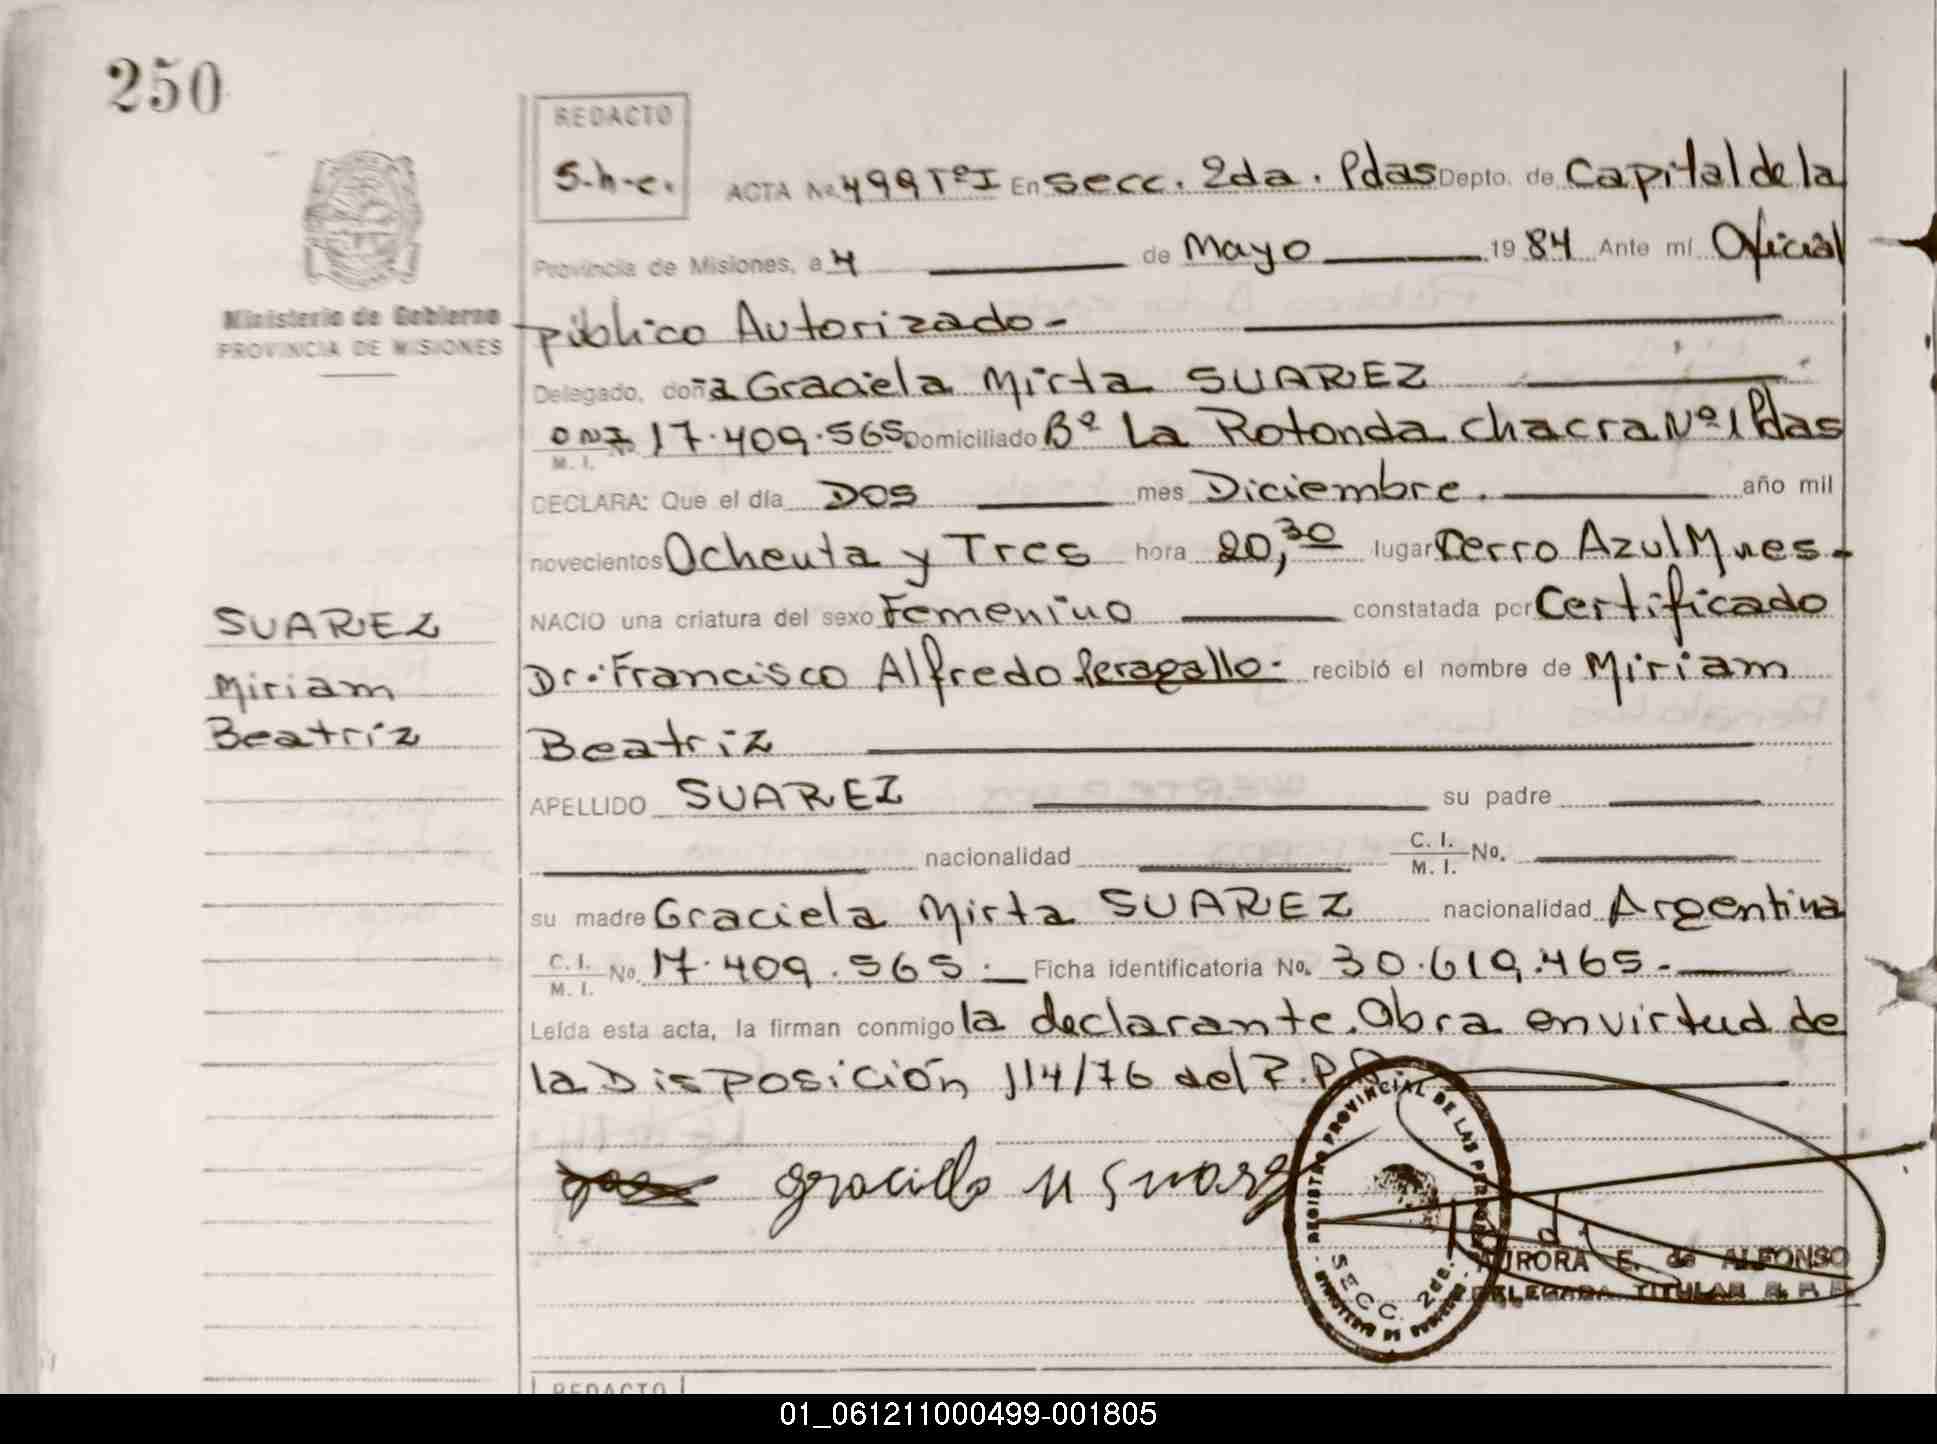 250
REDACTO
S.h.c.
ACTA No. 499 Tº I En secc. 2da. Pdas Depto. de Capital de la
Provincia de Misiones, a 4 de Mayo 1984 Ante mí Oficial
Ministerio de Gobierno
PROVINCIA DE MISIONES
público Autorizado-
Delegado, doña Graciela Mirta SUAREZ
DNI M. I. No. 17.409.565 Domiciliado Bº La Rotonda chacra Nº 1 Pdas
DECLARA: Que el día Dos mes Diciembre. año mil
novecientos Ochenta y Tres hora 20,30 lugar Cerro Azul Mnes-
SUAREZ
NACIO una criatura del sexo Femenino constatada por Certificado
Miriam
Dr. Francisco Alfredo Peragallo- recibió el nombre de Miriam
Beatriz
Beatriz
APELLIDO SUAREZ su padre
nacionalidad C. I. M. I. No.
su madre Graciela Mirta SUAREZ nacionalidad Argentina
C. I. M. I. No. 17.409.565.- Ficha identificatoria No. 30.619.465.-
Leída esta acta, la firman conmigo la declarante. Obra en virtud de
la Disposición 114/76 del
graciela M Suarez
REGISTRO PROVINCIAL DE LAS PERSONAS
SECC. 2da.
MINISTERIO DE GOBIERNO
AURORA E. de ALFONSO
DELEGADA TITULAR R. P. P.
REDACTO
01_061211000499-001805